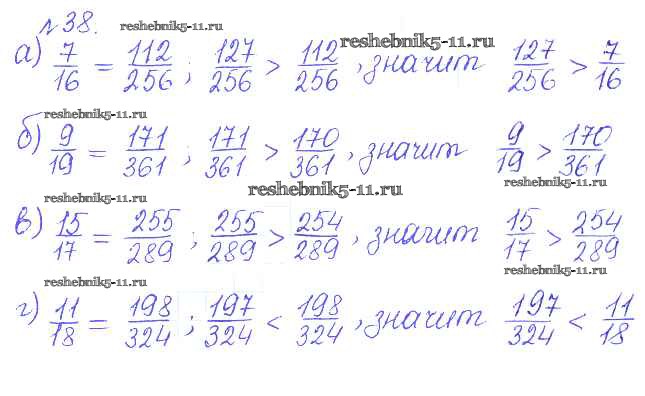 №38. reshebnik5-11.ru
reshebnik5-11.ru
а) 7/16 = 112/256 ; 127/256 > 112/256 , значит 127/256 > 7/16
reshebnik5-11.ru
б) 9/19 = 171/361 ; 171/361 > 170/361 , значит 9/19 > 170/361
reshebnik5-11.ru
reshebnik5-11.ru
reshebnik5-11.ru
в) 15/17 = 255/289 ; 255/289 > 254/289 , значит 15/17 > 254/289
reshebnik5-11.ru
reshebnik5-11.ru
г) 11/18 = 198/324 ; 197/324 < 198/324 , значит 197/324 < 11/18